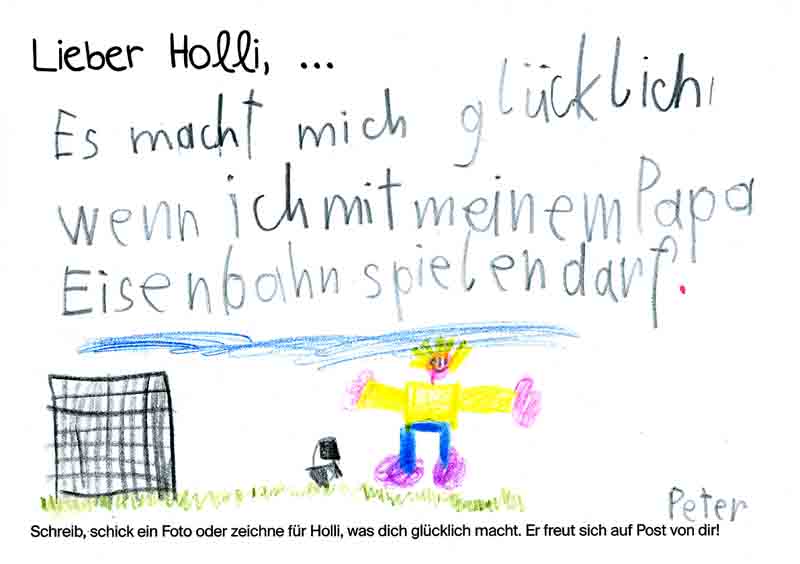 Lieber Holli, ...
Es macht mich glücklich,
wenn ich mit meinem Papa
Eisenbahn spielen darf.
Peter
Schreib, schick ein Foto oder zeichne für Holli, was dich glücklich macht. Er freut sich auf Post von dir!